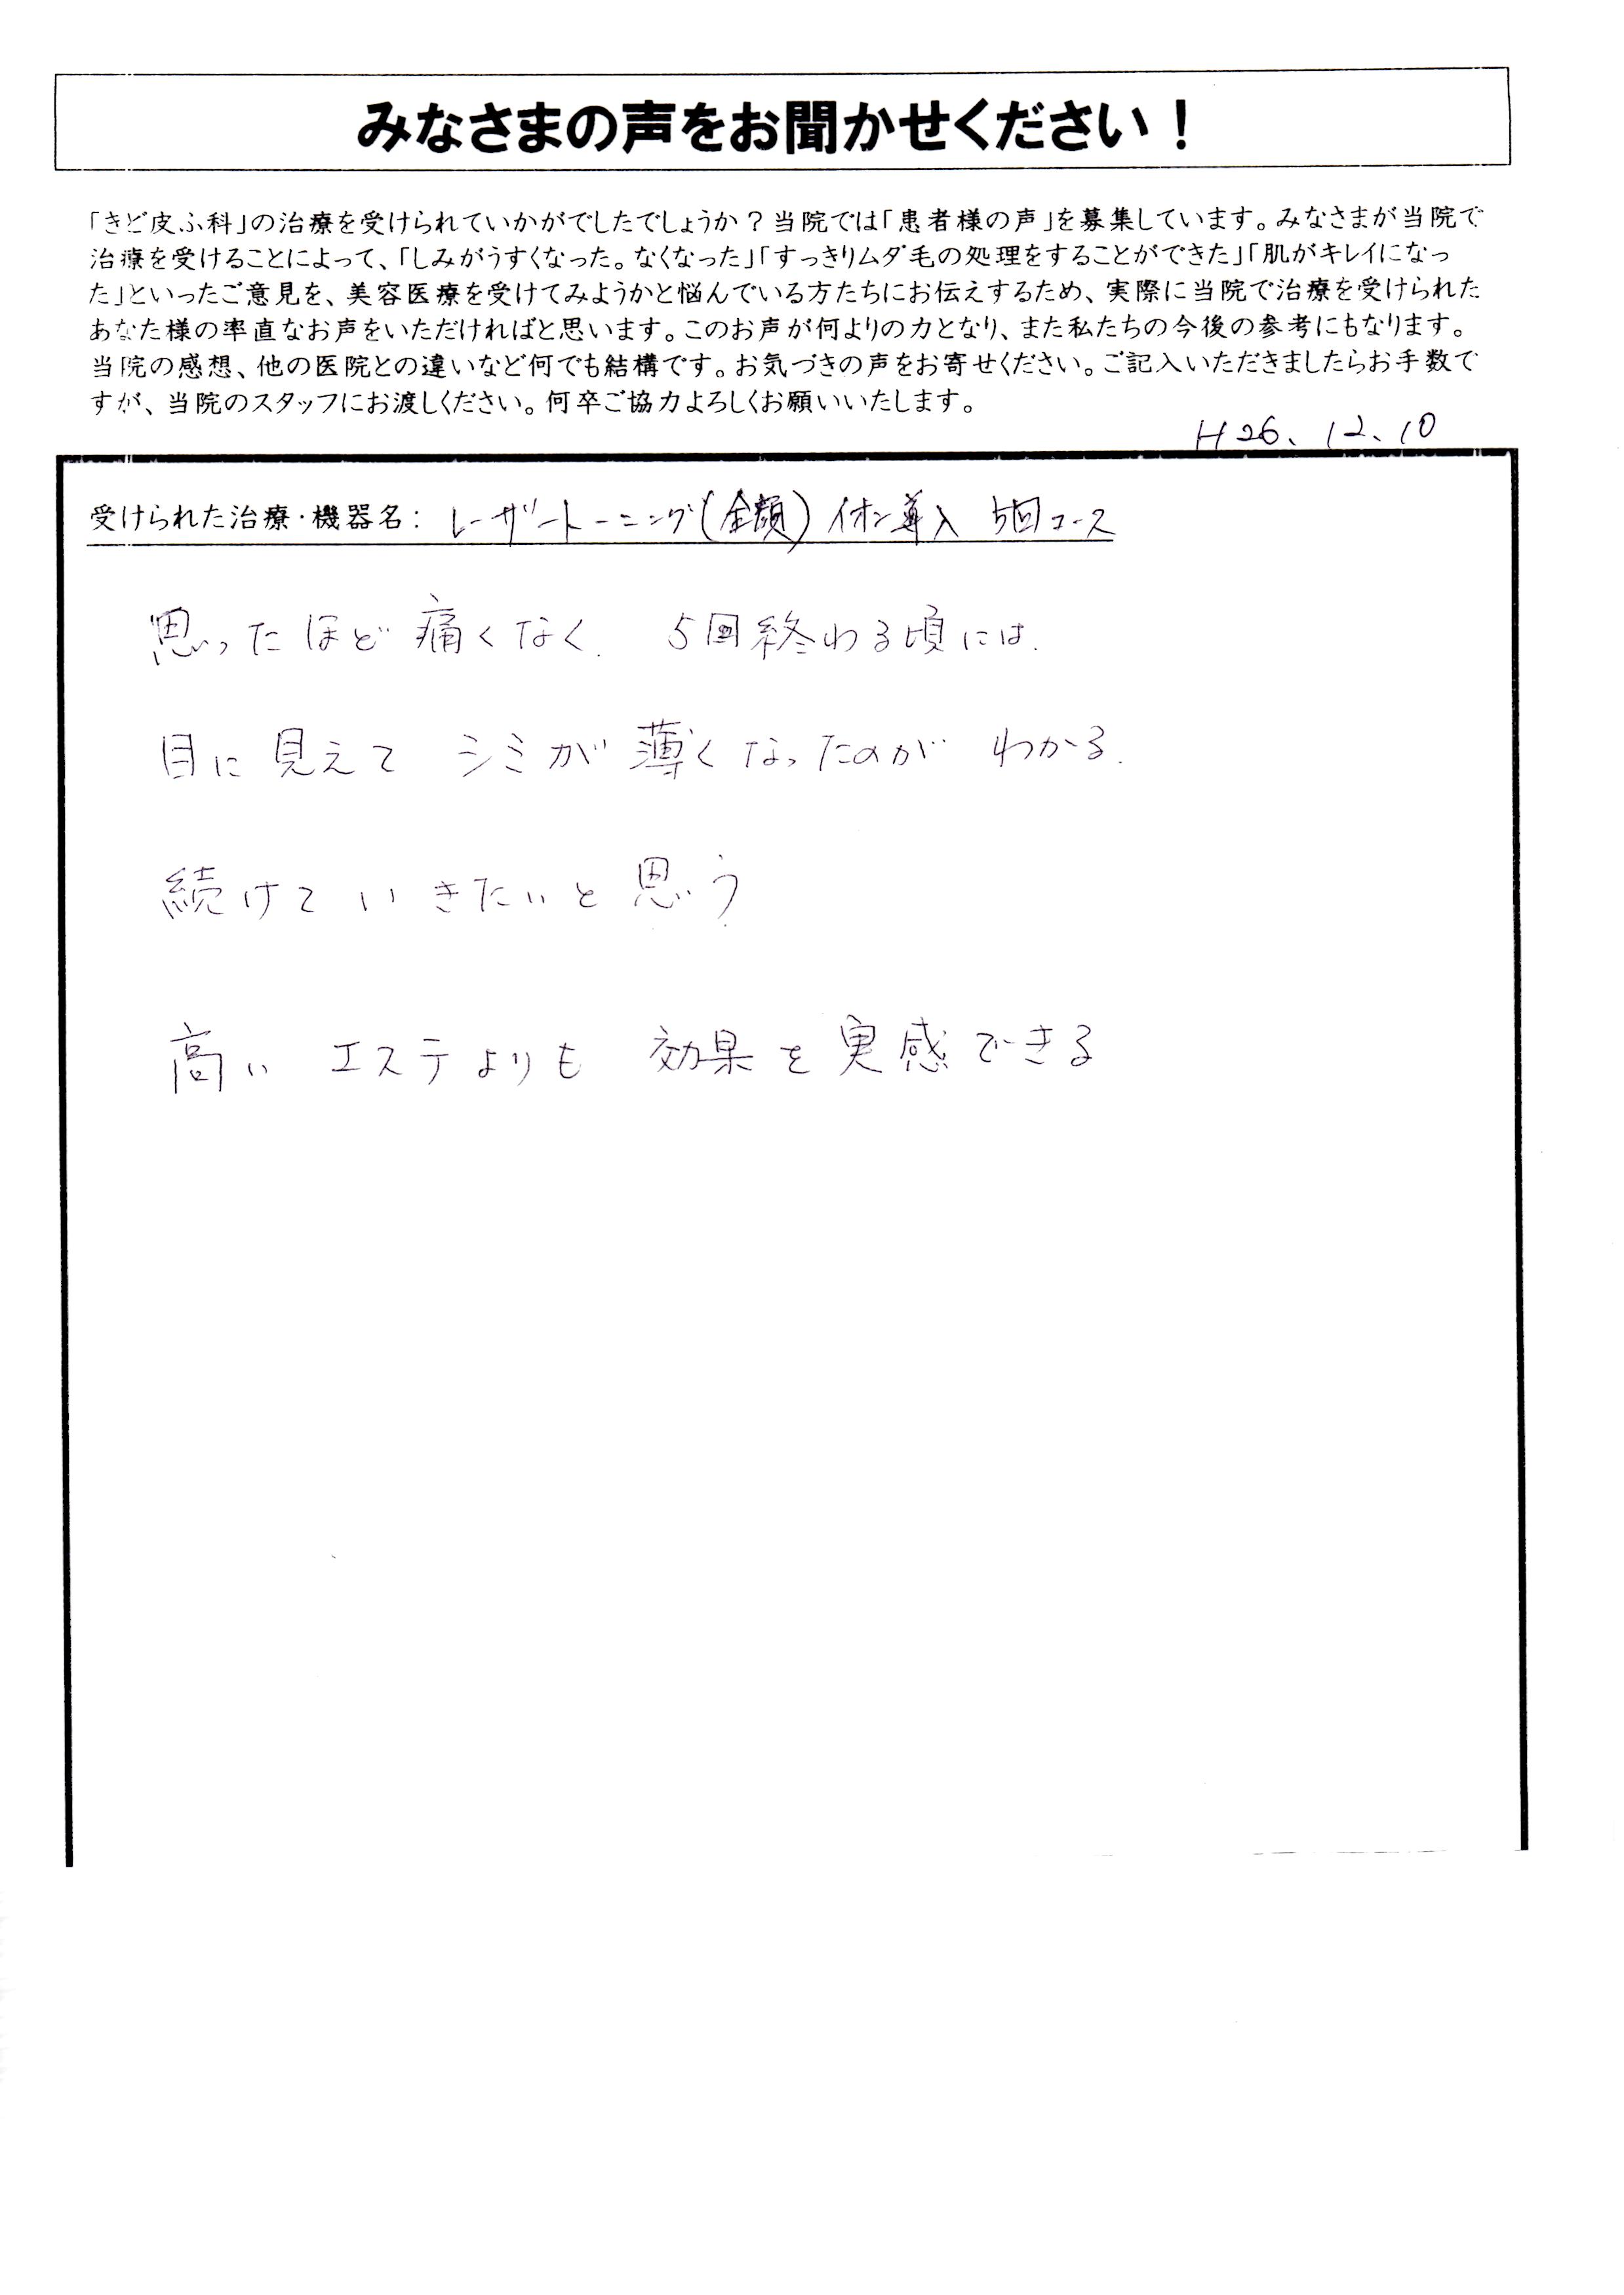 みなさまの声をお聞かせください！
「きど皮ふ科」の治療を受けられていかがでしたでしょうか？当院では「患者様の声」を募集しています。みなさまが当院で
治療を受けることによって、「しみがうすくなった。なくなった」「すっきりムダ毛の処理をすることができた」「肌がキレイになっ
た」といったご意見を、美容医療を受けてみようかと悩んでいる方たちにお伝えするため、実際に当院で治療を受けられた
あなた様の率直なお声をいただければと思います。このお声が何よりの力となり、また私たちの今後の参考にもなります。
当院の感想、他の医院との違いなど何でも結構です。お気づきの声をお寄せください。ご記入いただきましたらお手数で
すが、当院のスタッフにお渡しください。何卒ご協力よろしくお願いいたします。
H26、12、10
受けられた治療・機器名： レーザートーニング(全顔) イオン導入 5回コース
思ったほど痛くなく、5回終わる頃には、
目に見えて シミが薄くなったのが わかる。
続けていきたいと思う
高い エステよりも 効果を実感できる